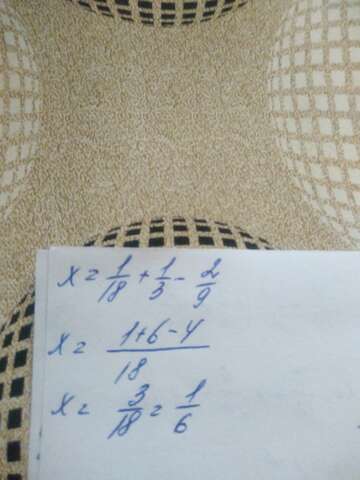 x = 1/18 + 1/3 - 2/9
x = (1+6-4)/18
x = 3/18 = 1/6